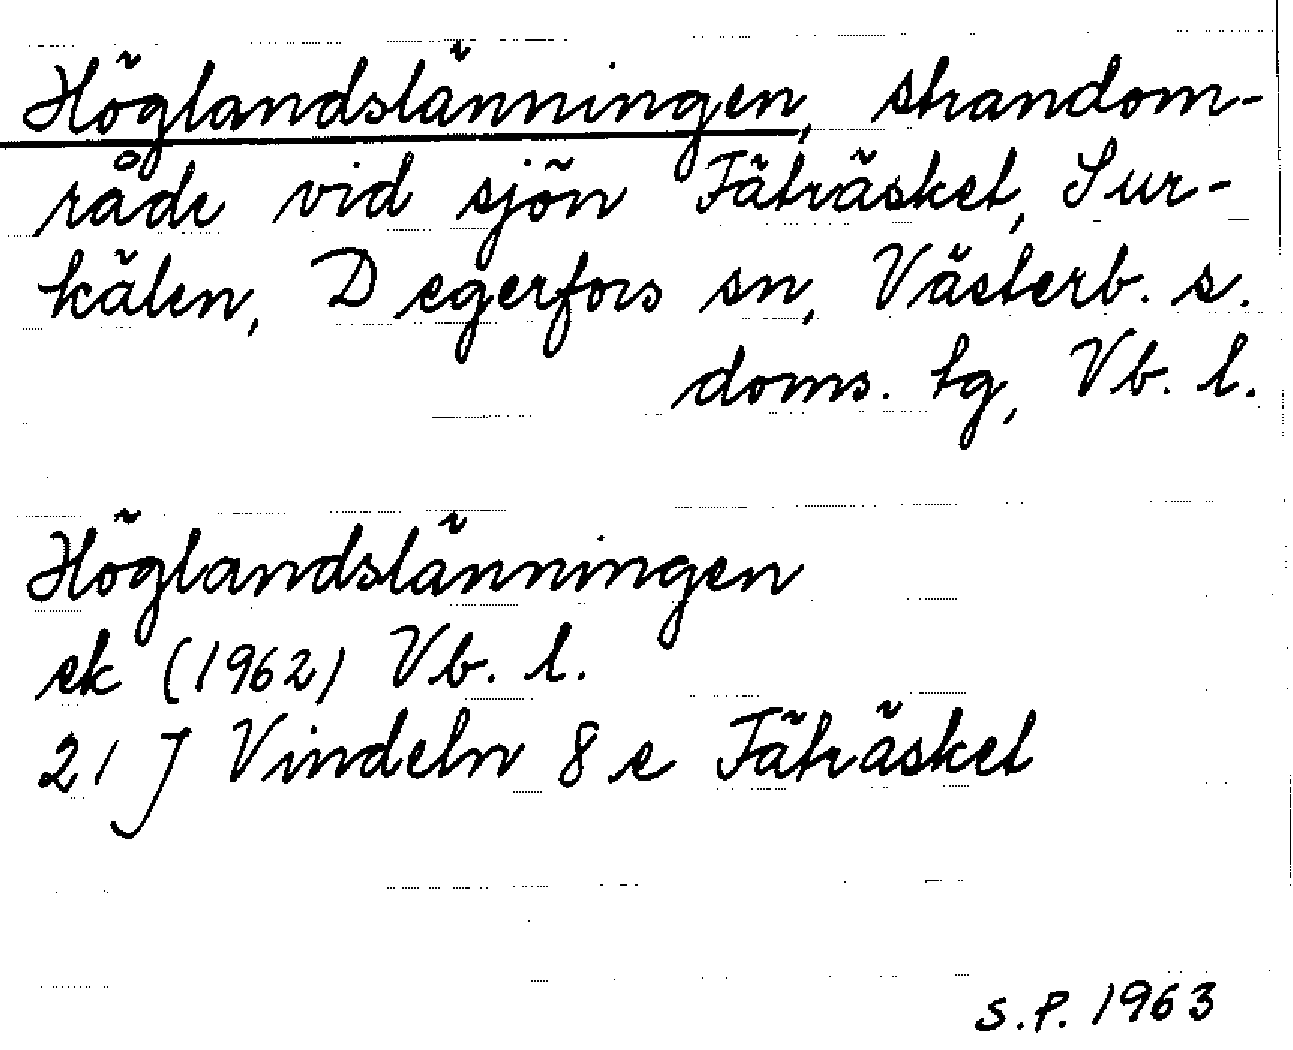 Höglandslänningen, strandom-
råde vid sjön Fäträsket, Sur-
kälen, Degerfors sn, Västerb. s.
doms. tg, Vb. l.
Höglandslänningen
ek (1962) Vb. l.
21 J Vindeln 8 e Fäträsket
S.P. 1963